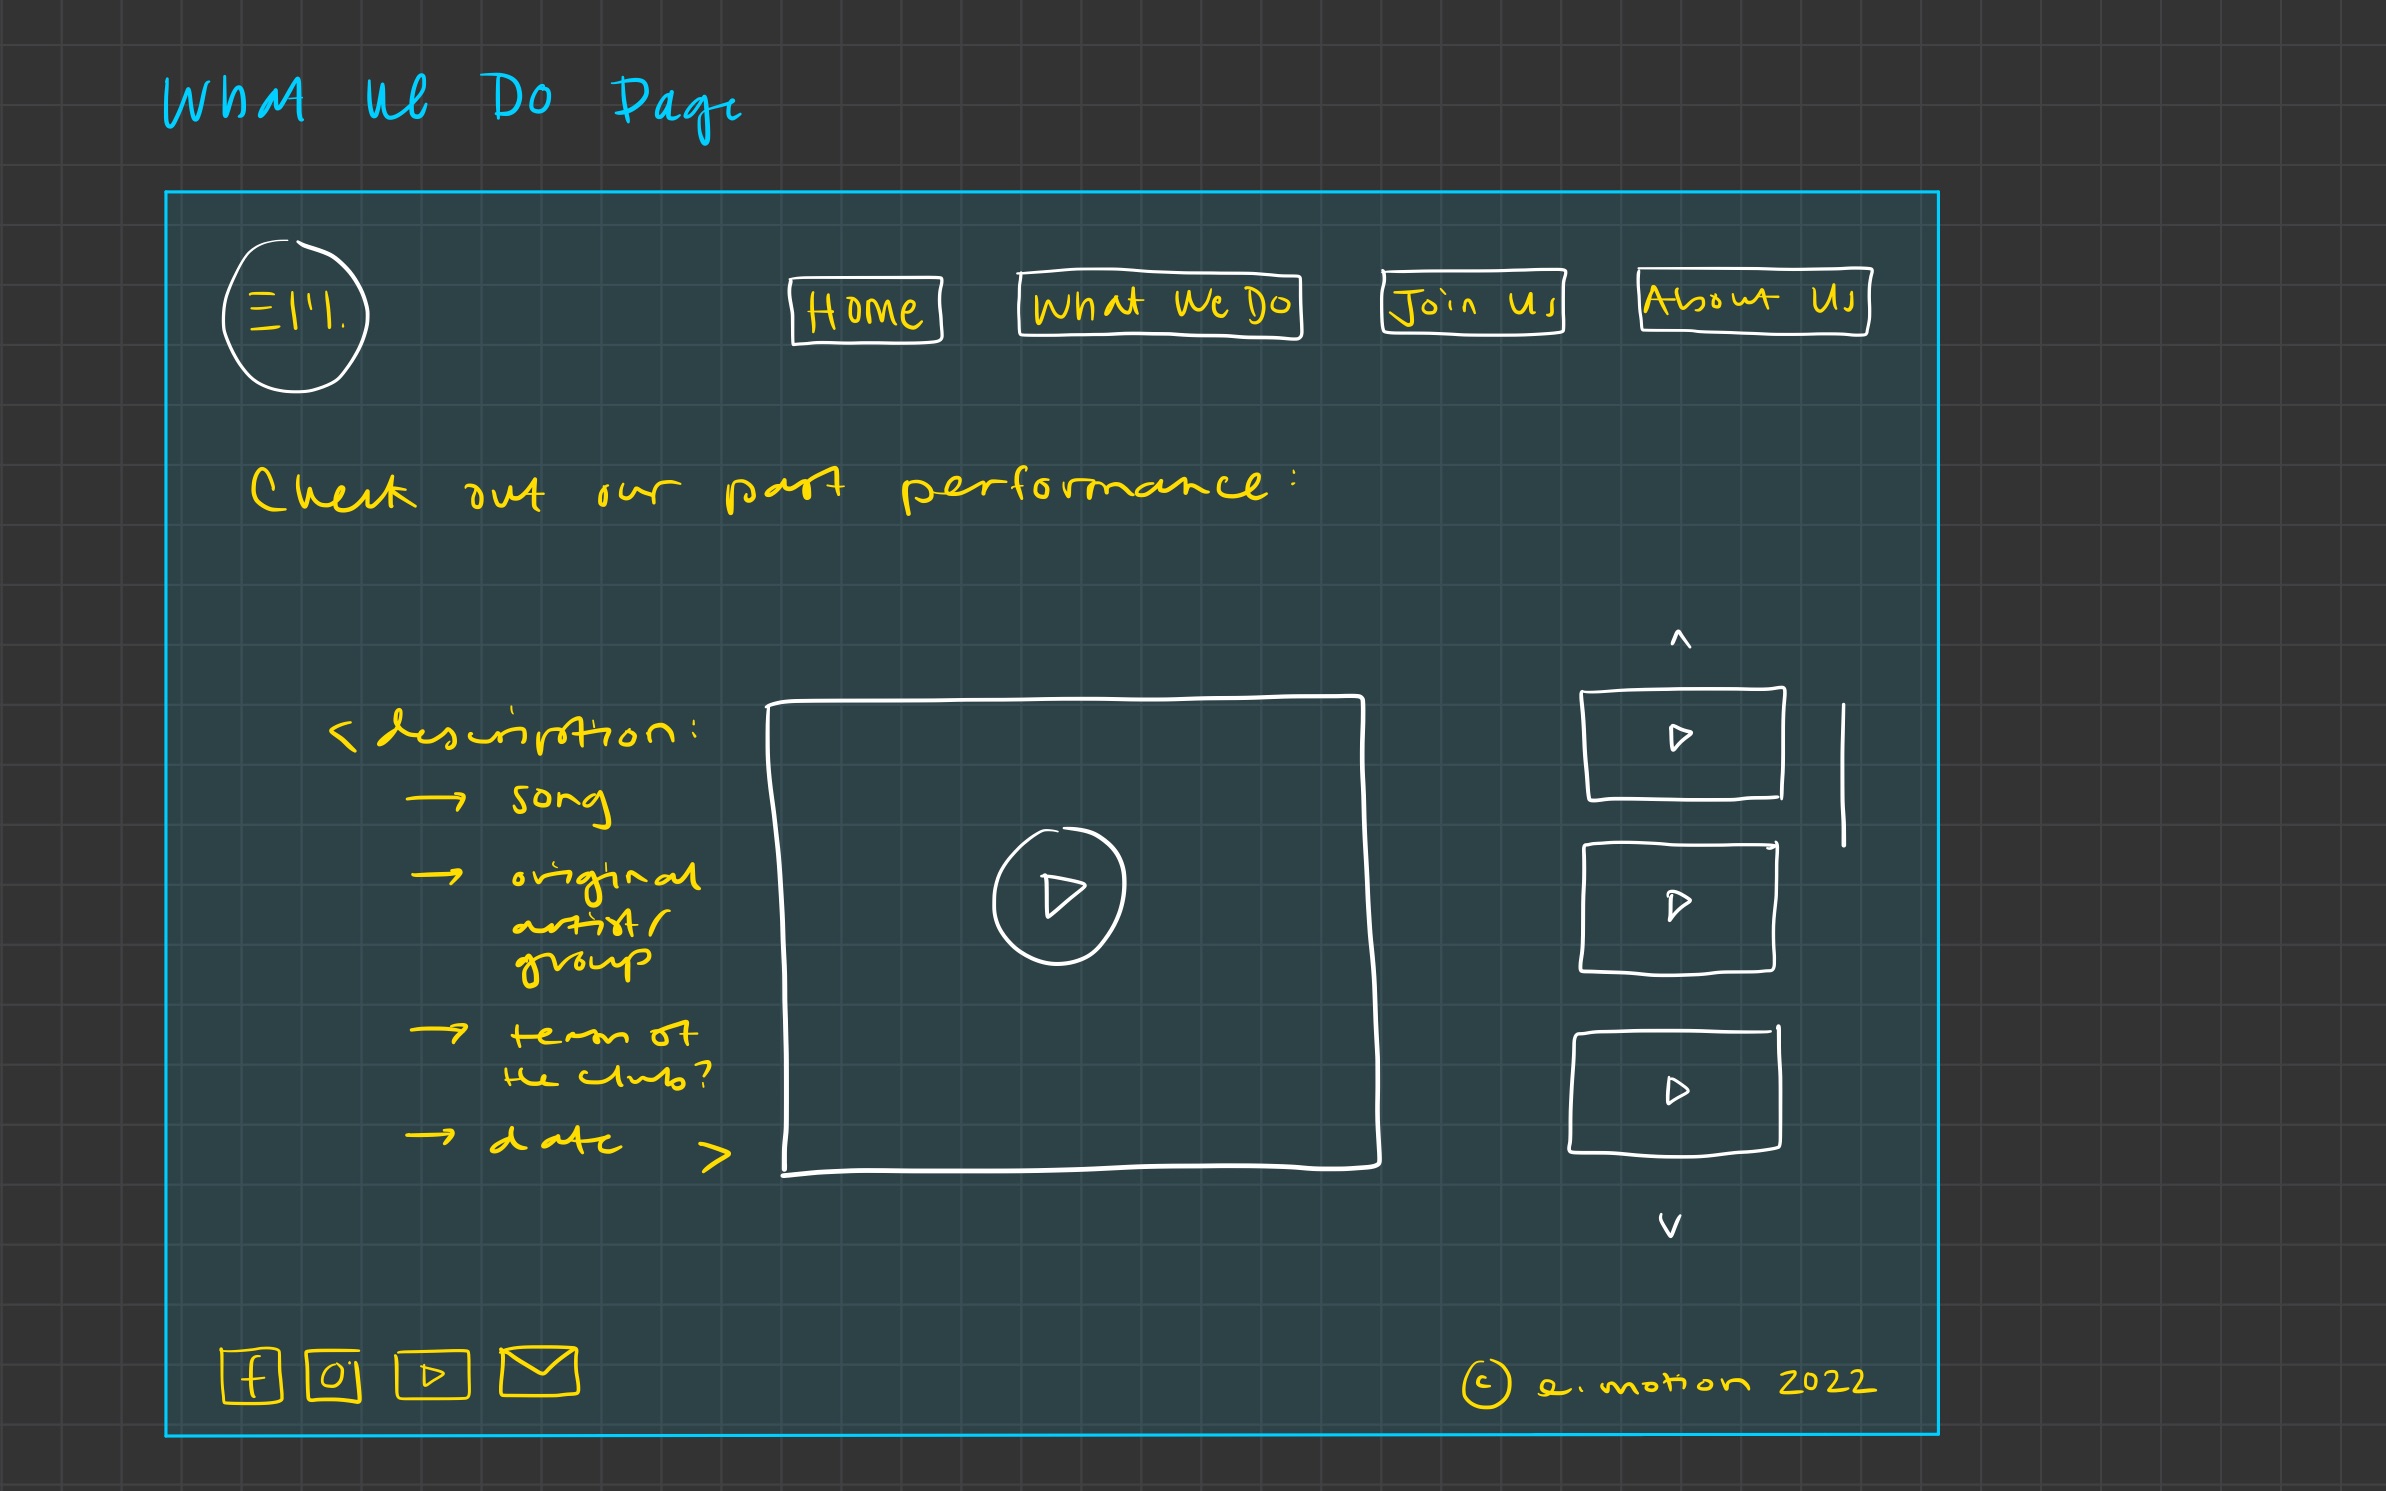 What We Do Page
Home What We Do Join Us About Us
Check out our past performance:
< description:
→ song
→ original
artist/
group
→ team of
the club?
→ date >
© e.motion 2022